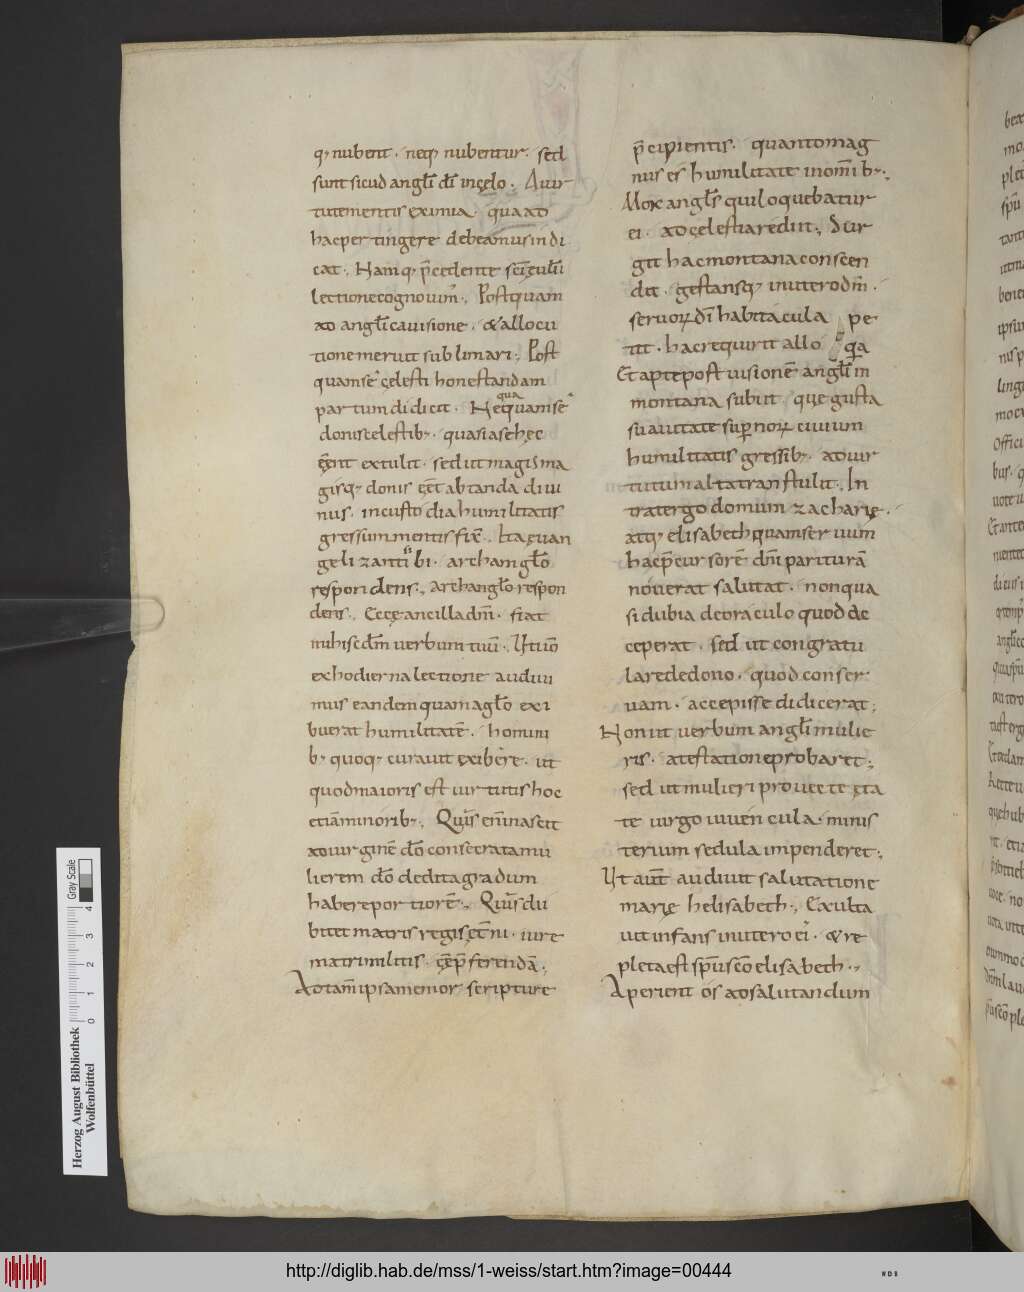 q; nubent . neq; nubentur . sed
sunt sicud angl̅i d̅i in çęlo . A uir
tute mentis eximia . qua ad
haec pertingere debeamus indi
cat ., Namq; p̅cedente sc̅i ęu̅lii
lectione cognouim' ., Postquam
ad angl̅i cauisione . & allocu
tione meruit sublimari ., Post
quam se' çęlesti honestandam
partum didicit . Nequaquam se'
donis celestib; . quasi a se hęc
ęe̅nt extulit . sed ut magis ma
gisq; donis ęe̅t abtanda diui
nus . in custodia humilitatis
gressum mentis fixe̅ ., Ita ęuan
gelizanti sibi . archanglo̅
respondens ., Archanglo̅ respon
dens ., Ecce ancilla dn̅i . fiat
mihi scdm̅ uerbum tuu̅ ., Ut uo̅
ex hodierna lectione audiui
mus eandem quam aglo̅ exi
buerat humilitate̅ . homini
b; quoq; curauit exibere . ut
quod maioris est uirtutis hoc
etia̅ minorib; ., Quis eni̅ nascit
ad uirgine̅ do̅ consecratam mu
lierem do̅ dedita gradum
habere portiore̅ ., Quis du
bitet matris regis ęt̅ni . iure
matri militis . ęe̅ p̅ferenda̅ .,
At tam̅ ipsa memor scripture
p̅cipientis . quanto mag
nus es humilitate in om̅ib; .,
Mox angl̅s qui loquebatur
ei . ad çęlestia rediit ., Sur
git hac montana conscen
dit . gestansq; in utero dn̅i .
seruor̅ d̅i habitacula pe
tit . hac requirit allo q̅a
Et apte post uisione̅ angl̅i in
montana subiit . que gusta
suauitate sup̅nor̅ ciuium
humilitatis gressib; . ad uir
tutum alta transtulit ., In
trat ergo domum zacharię .
atq; elisabeth quam seruum
hac p̅cursore̅ dn̅i paritura̅
nouerat salutat . non qua
si dubia de oraculo quod ac
ceperat . sed ut congratu
lare de dono . quod conser
uam . accepisse didicerat ;
Non ut uerbum angl̅i mulie
ris . atestatione probaret .,
sed ut mulieri prouectę ęta
te uirgo iuuencula . minis
terium sedula impenderet .,
Ut aut̅ audiuit salutatione
marię helisabeth ., Exulta
uit infans in utero ei' . & re
pleta est sp̅u sc̅o elisabeth .,
Aperient os ad salutandum
Gray Scale
0 1 2 3 4
Herzog August Bibliothek
Wolfenbüttel
http://diglib.hab.de/mss/1-weiss/start.htm?image=00444